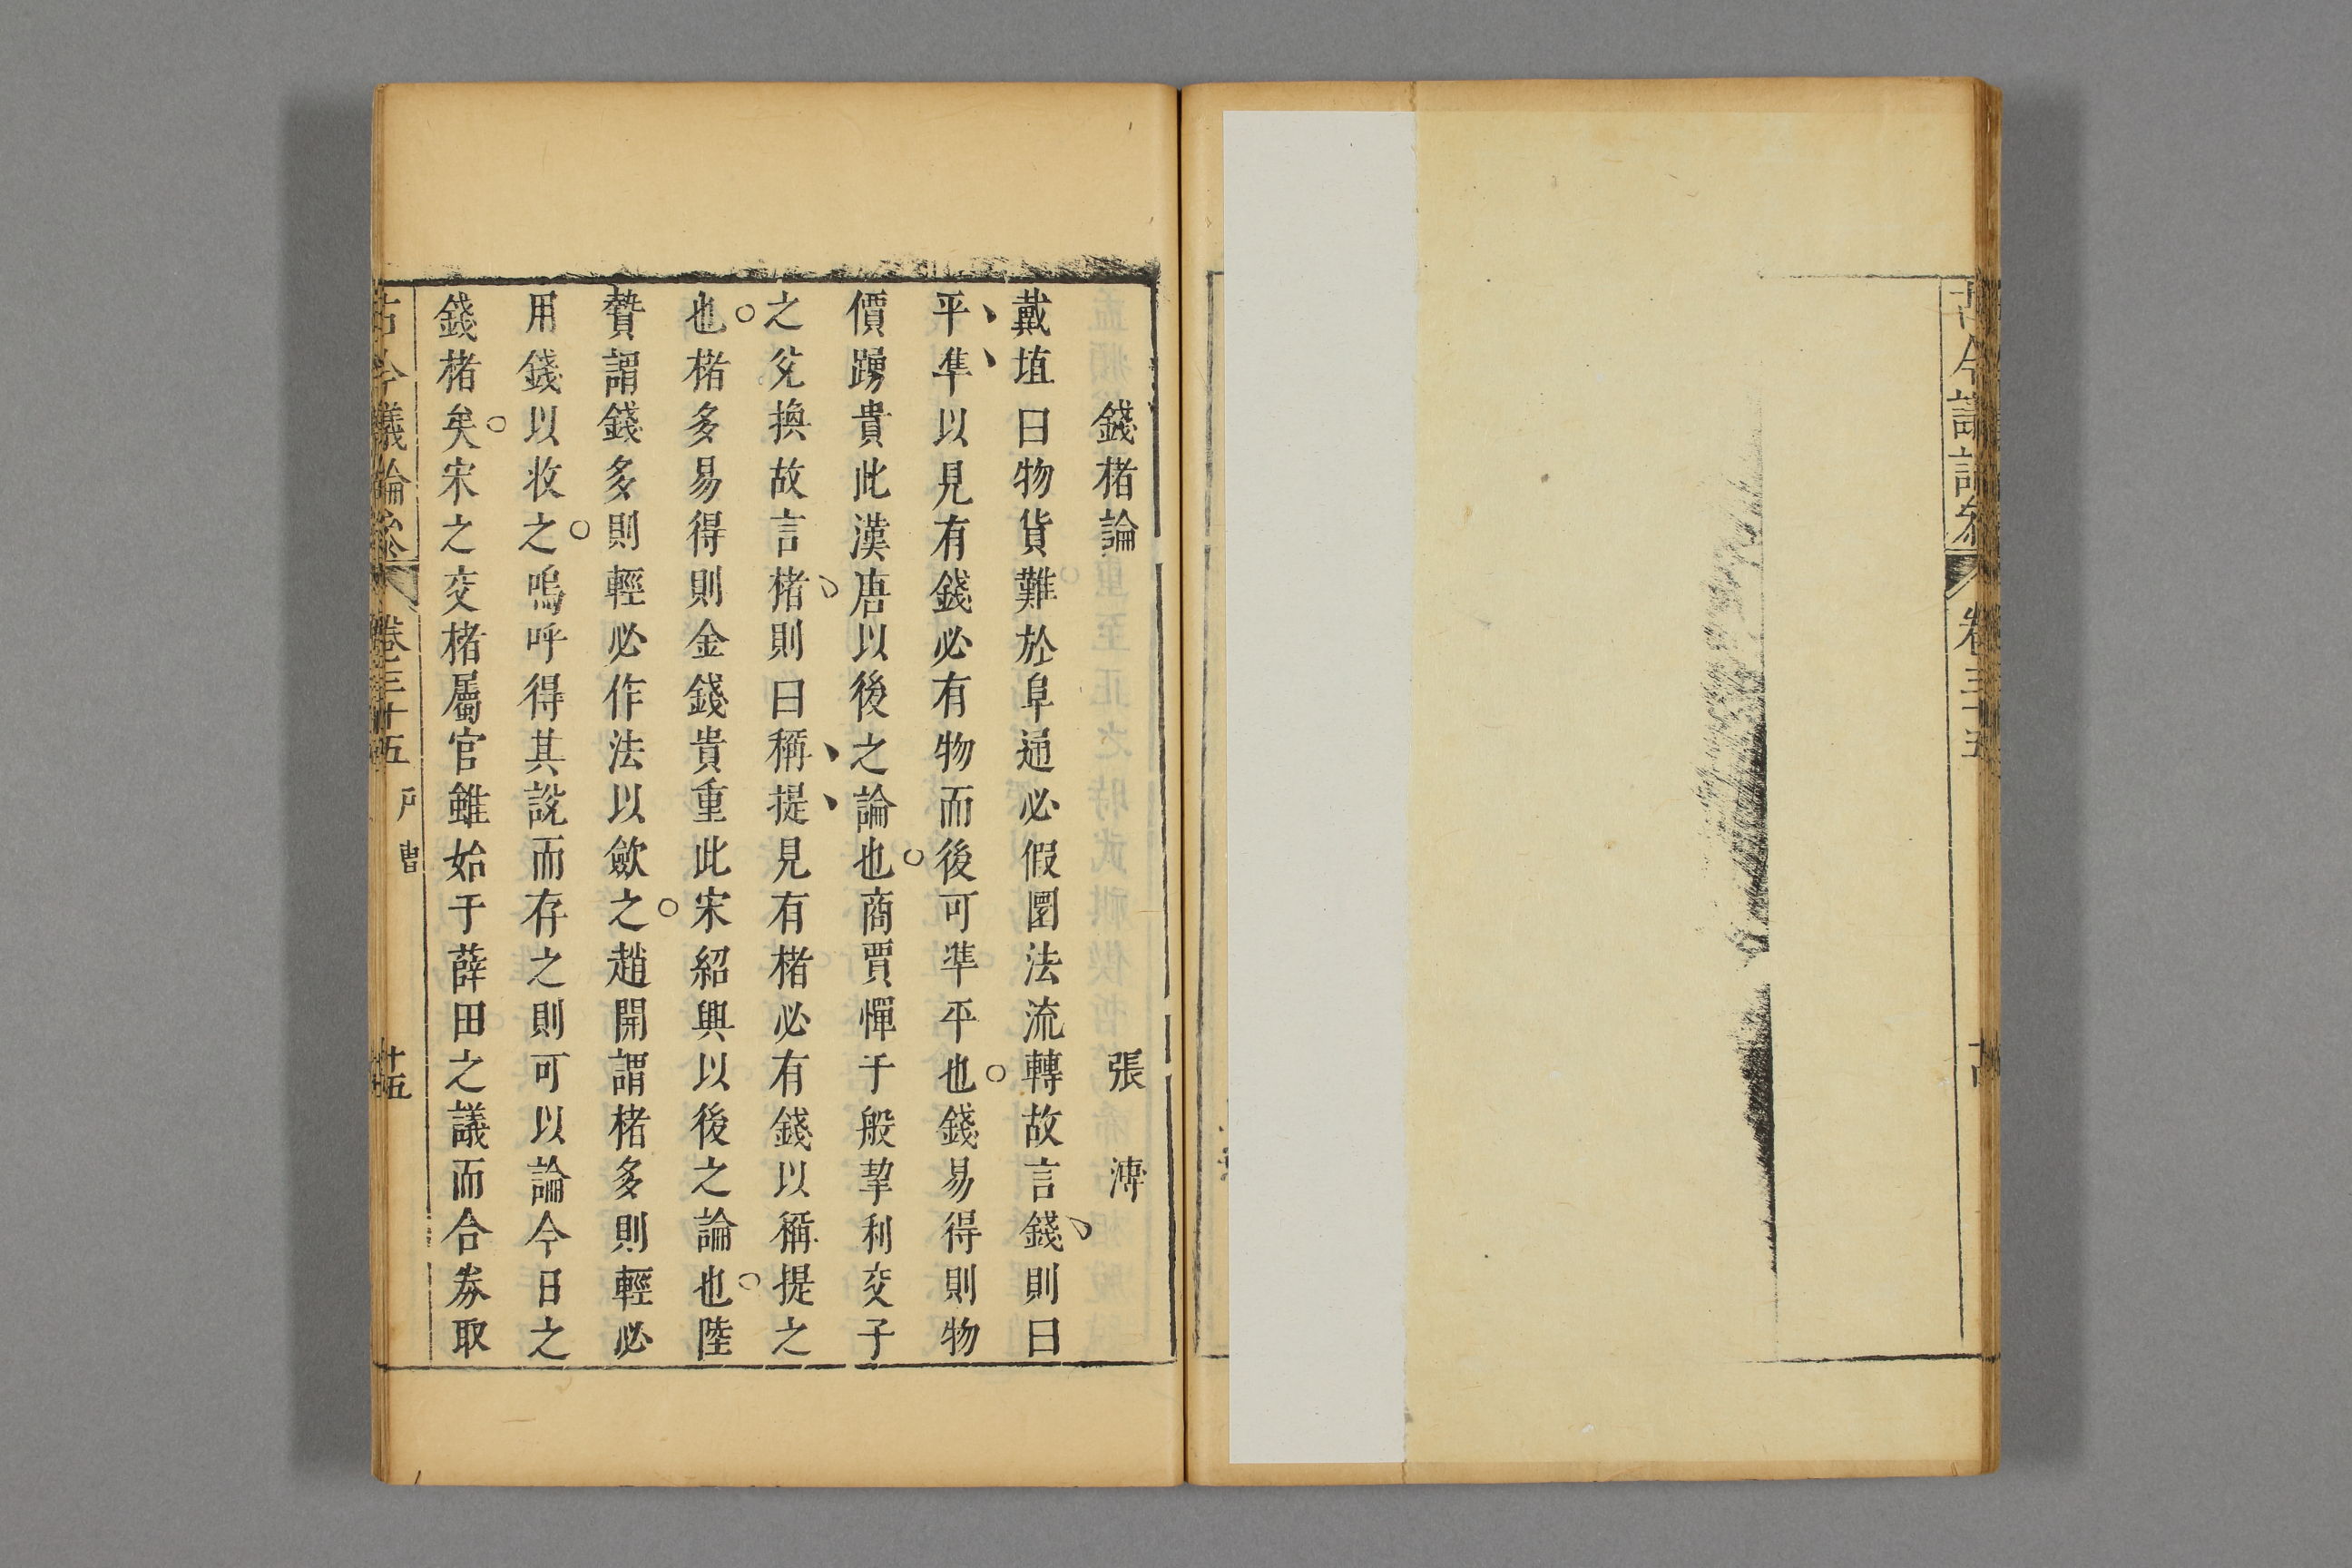 古今議論參 卷三十五
錢楮論 張溥
戴埴曰物貨難於阜通必假圜法流轉故言錢則曰
平準以見有錢必有物而後可準平也錢易得則物
價踴貴此漢唐以後之論也商賈憚于般挈利交子
之兌換故言楮則曰稱提見有楮必有錢以稱提之
也楮多易得則金錢貴重此宋紹興以後之論也陸
贄謂錢多則輕必作法以歛之趙開謂楮多則輕必
用錢以收之嗚呼得其說而存之則可以論今日之
錢楮矣宋之交楮屬官雖始于薛田之議而合券取
古今議論參 卷三十五 戶曹 十五